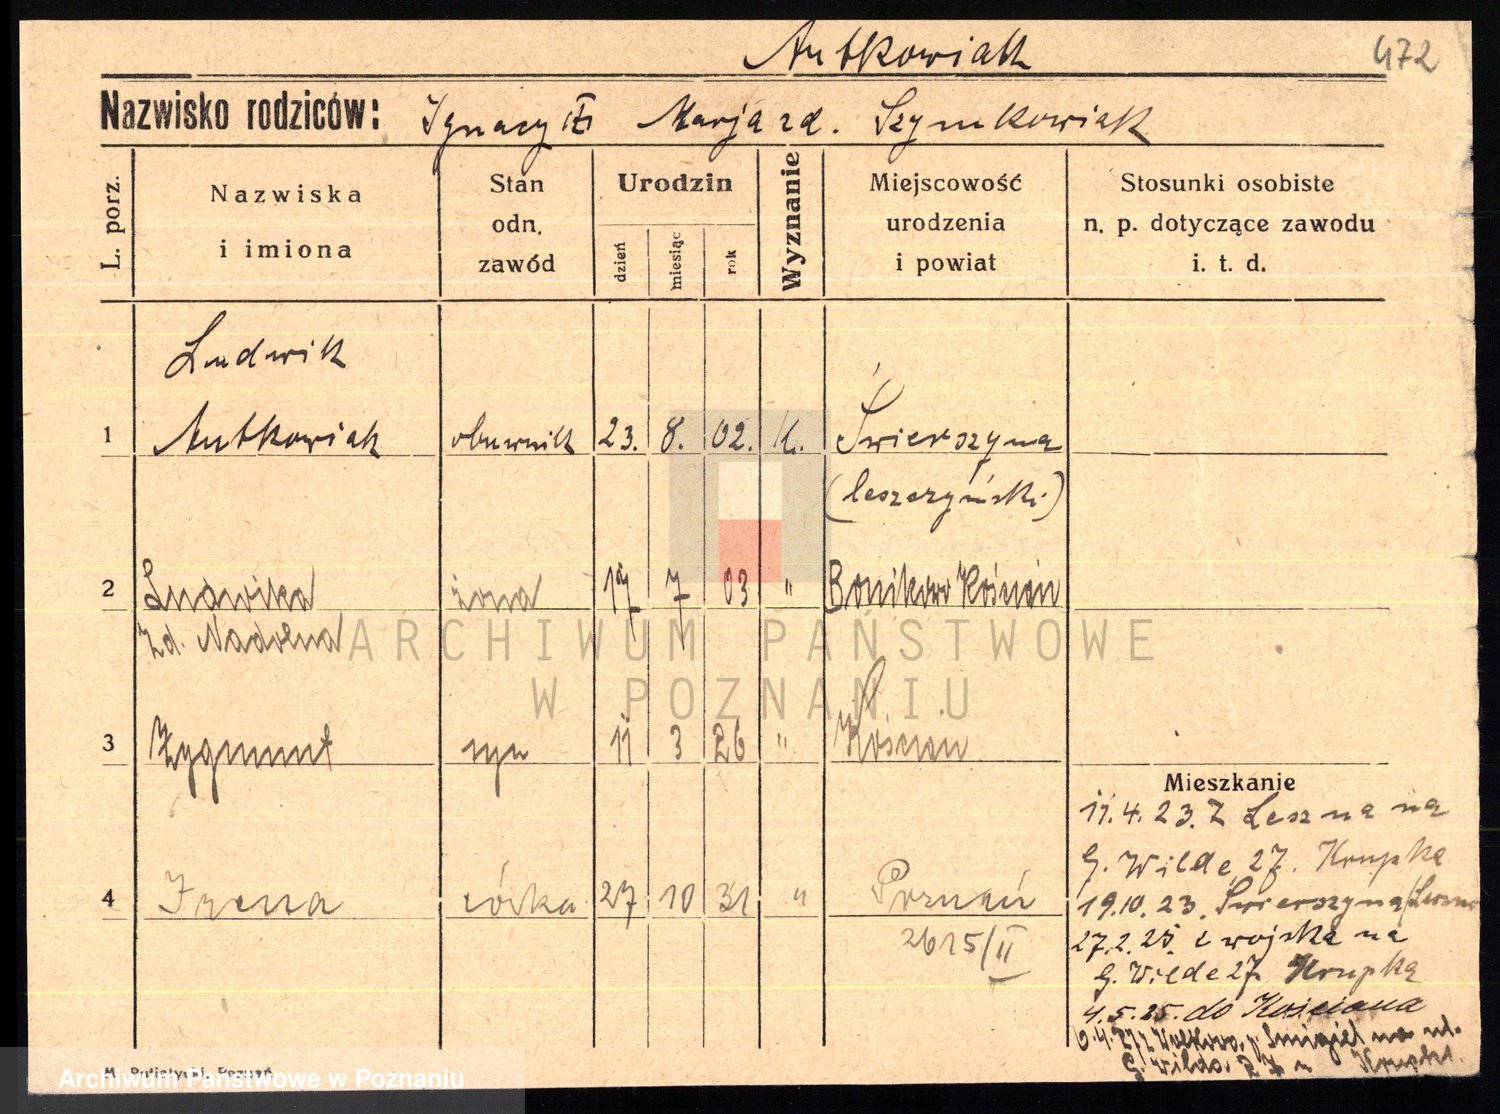 Antkowiak 472
Nazwisko rodziców: Ignacy Marja zd. Szymkowiak
L. porz.
Nazwiska i imiona
Stan odn. zawód
Urodzin
dzień miesiąc rok
Wyznanie
Miejscowość urodzenia i powiat
Stosunki osobiste n. p. dotyczące zawodu i. t. d.
Ludwik
1 Antkowiak obuwnik 23. 8. 02. k. Świerszyna
(leszczyński)
2 Ludwika żona 17 7 03 " Bonikowo Kościan
zd. Nadolna
ARCHIWUM PAŃSTWOWE
W POZNANIU
3 Zygmunt syn 11 3 26 " Kościan
Mieszkanie
11.4.23. Z Leszna na
G. Wilde 27. Krupka
4 Irena córka 27 10 31 " Poznań
19.10.23. Świerszyna/Leszno
2615/II
27.2.25. z wojska na
G. Wilde 27. Krupka
4.5.25. do Kościana
Śmigiel na ul.
G. Wilda 27 u
M. Putiatycki, Poznań
Archiwum Państwowe w Poznaniu